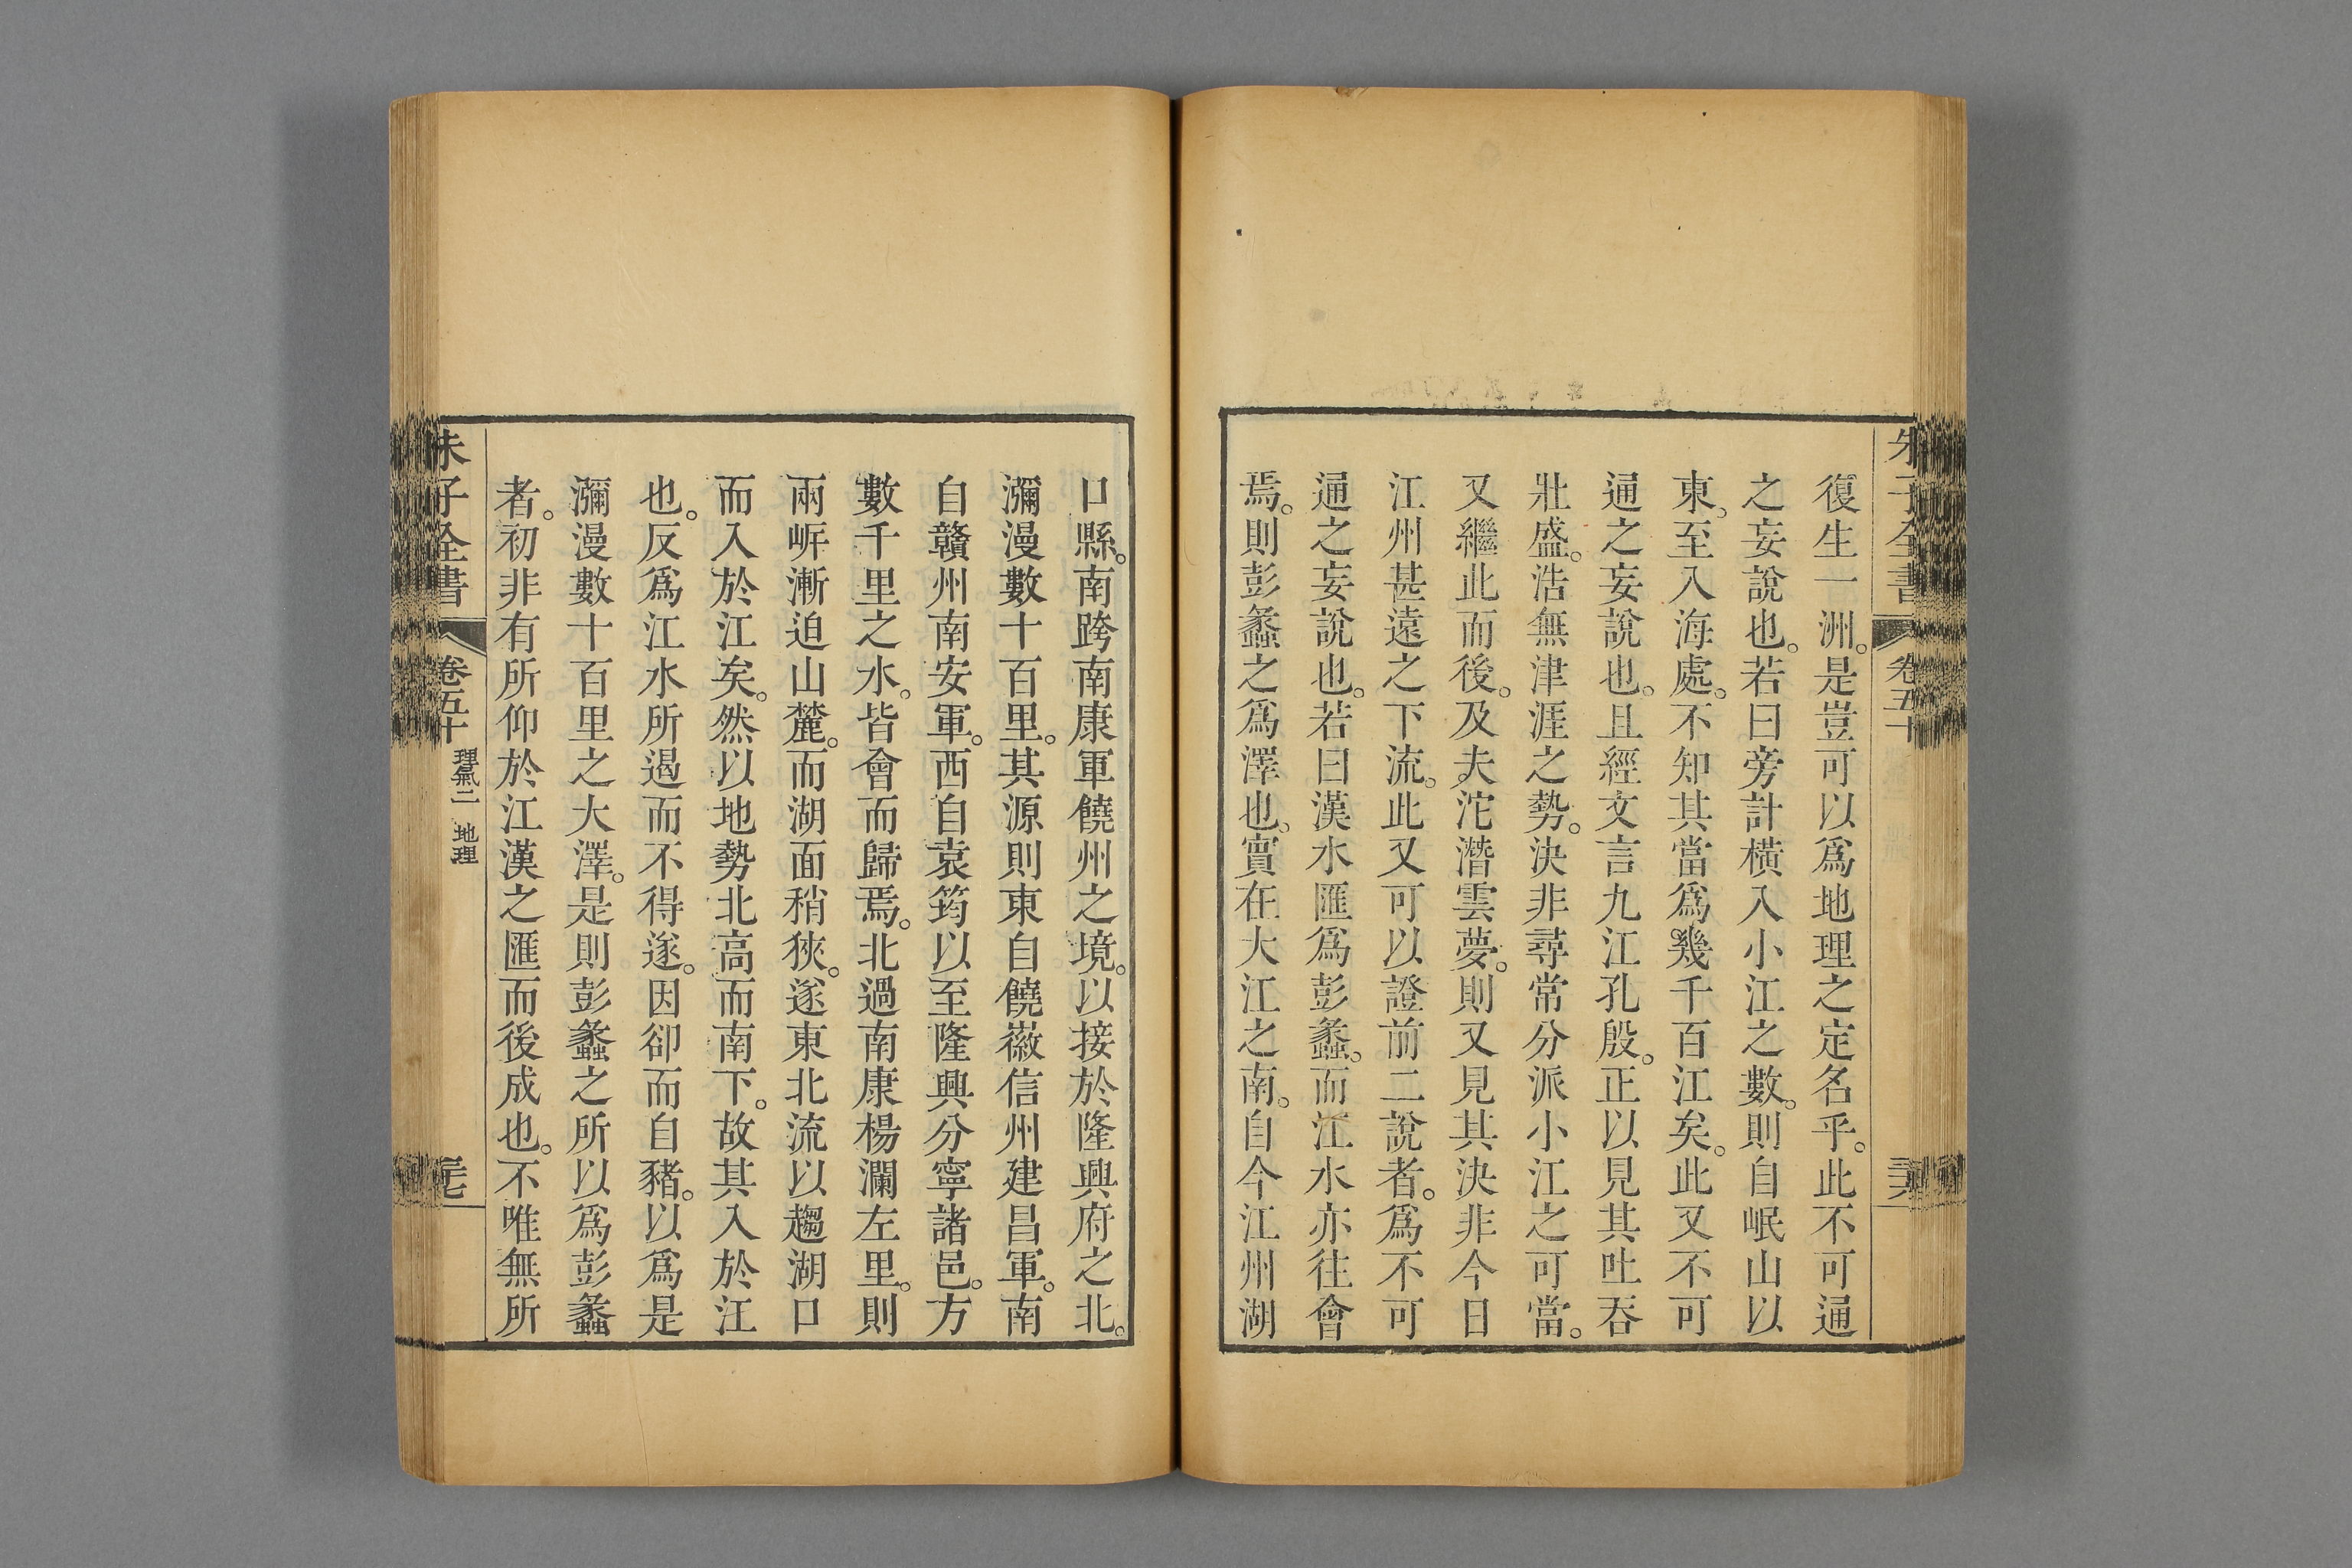 朱子全書 卷五十 二十六
復生一洲。是豈可以爲地理之定名乎。此不可通
之妄說也。若曰旁計橫入小江之數。則自岷山以
東。至入海處。不知其當爲幾千百江矣。此又不可
通之妄說也。且經文言九江孔殷。正以見其吐吞
壯盛。浩無津涯之勢。決非尋常分派小江之可當。
又繼此而後。及夫沱潛雲夢。則又見其決非今日
江州甚遠之下流。此又可以證前二說者。爲不可
通之妄說也。若曰漢水匯爲彭蠡。而江水亦往會
焉。則彭蠡之爲澤也。實在大江之南。自今江州湖
口縣。南跨南康軍饒州之境。以接於隆興府之北。
瀰漫數十百里。其源則東自饒徽信州建昌軍。南
自贛州南安軍。西自袁筠以至隆興分寧諸邑。方
數千里之水。皆會而歸焉。北過南康楊瀾左里。則
兩岸漸迫山麓。而湖面稍狹。遂東北流以趨湖口
而入於江矣。然以地勢北高而南下。故其入於江
也。反爲江水所遏而不得遂。因卻而自豬。以爲是
瀰漫數十百里之大澤。是則彭蠡之所以爲彭蠡
者。初非有所仰於江漢之匯而後成也。不唯無所
朱子全書 卷五十 理氣二 地理 二十七